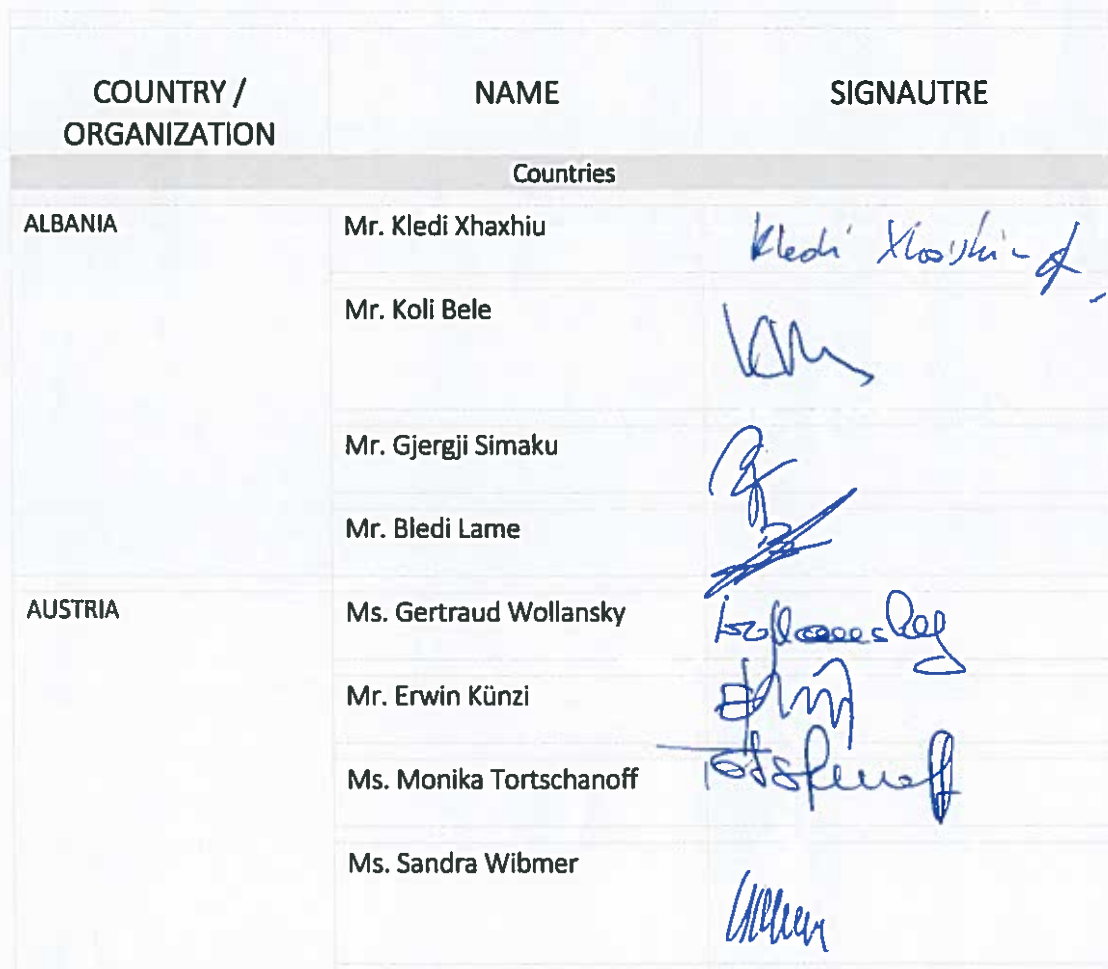 COUNTRY / NAME SIGNAUTRE
ORGANIZATION
Countries
ALBANIA Mr. Kledi Xhaxhiu Kledi
Mr. Koli Bele
Mr. Gjergji Simaku
Mr. Bledi Lame
AUSTRIA Ms. Gertraud Wollansky
Mr. Erwin Künzi
Ms. Monika Tortschanoff
Ms. Sandra Wibmer